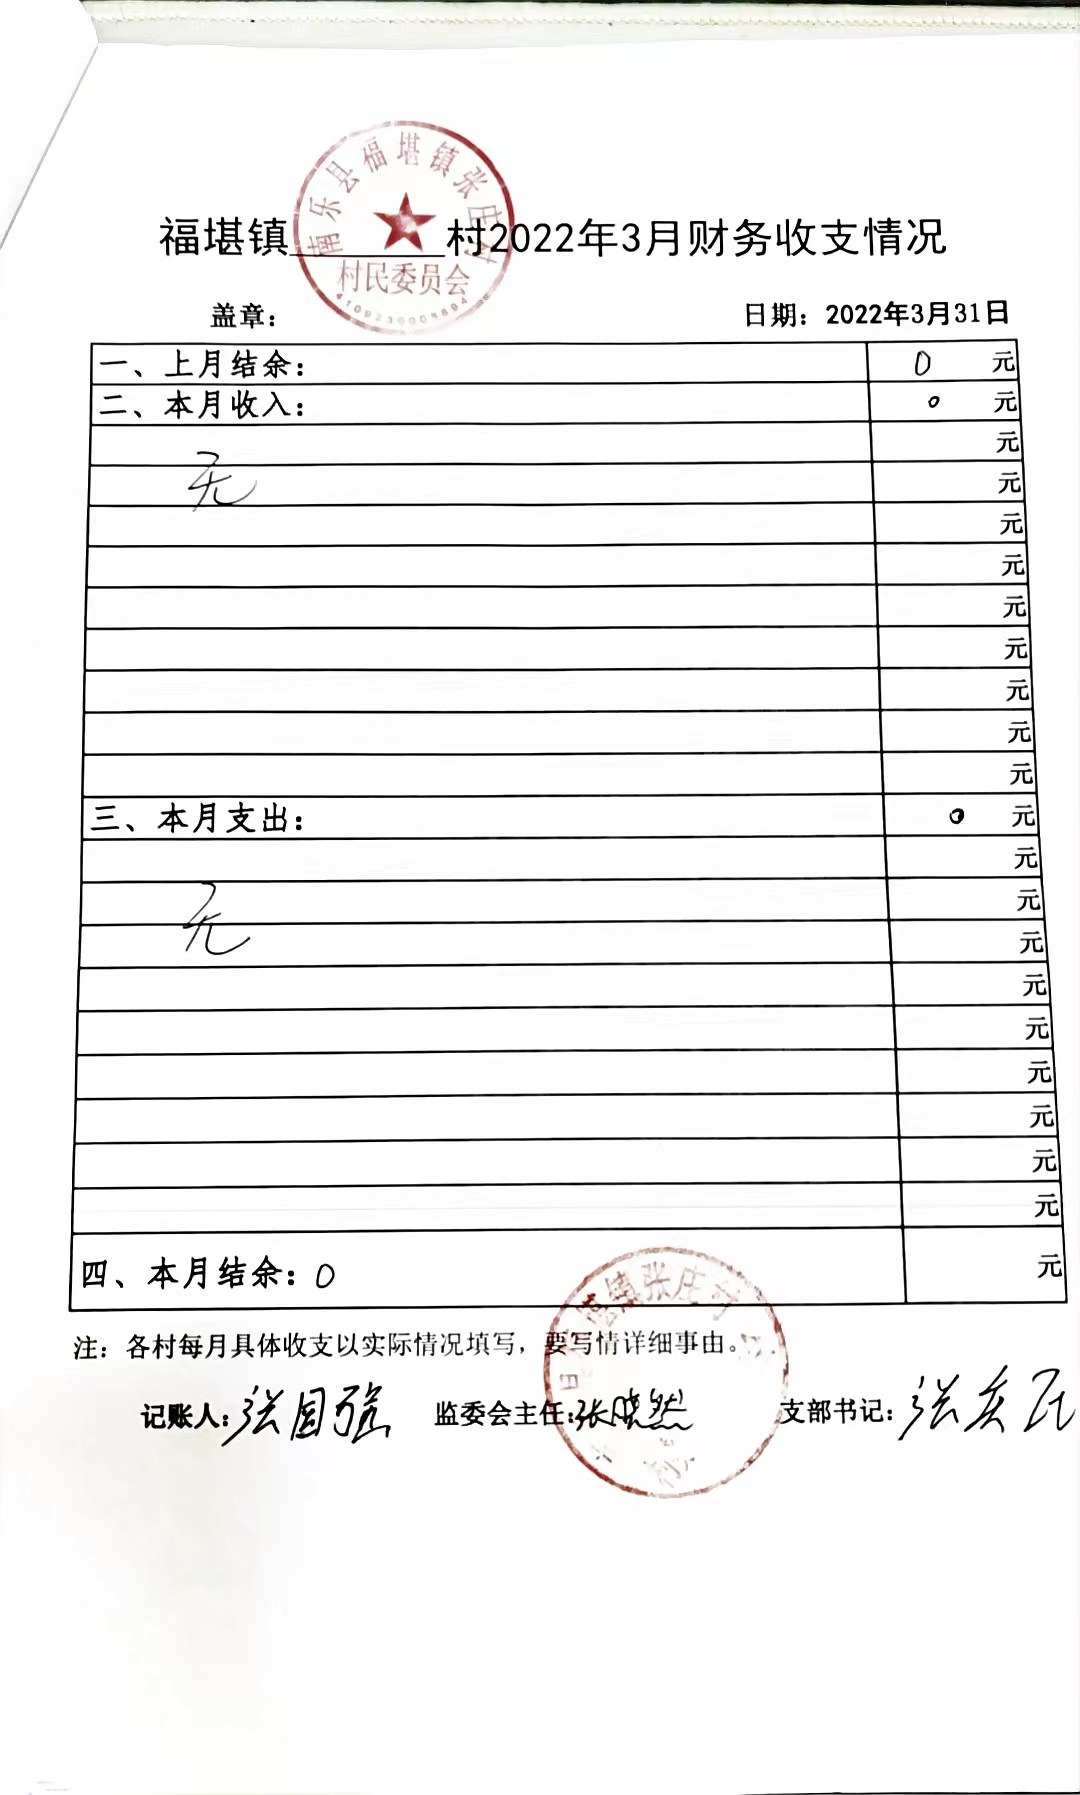 南乐县福堪镇张庄村
村民委员会
福堪镇 村2022年3月财务收支情况
盖章： 日期：2022年3月31日
一、上月结余： 0 元
二、本月收入： 0 元
元
无 元
元
元
元
元
元
元
元
三、本月支出： 0 元
元
无 元
元
元
元
元
元
元
元
四、本月结余：0 元
镇张庄村
注：各村每月具体收支以实际情况填写，要写情详细事由。
记账人：张国强 监委会主任：张晓然 支部书记：张